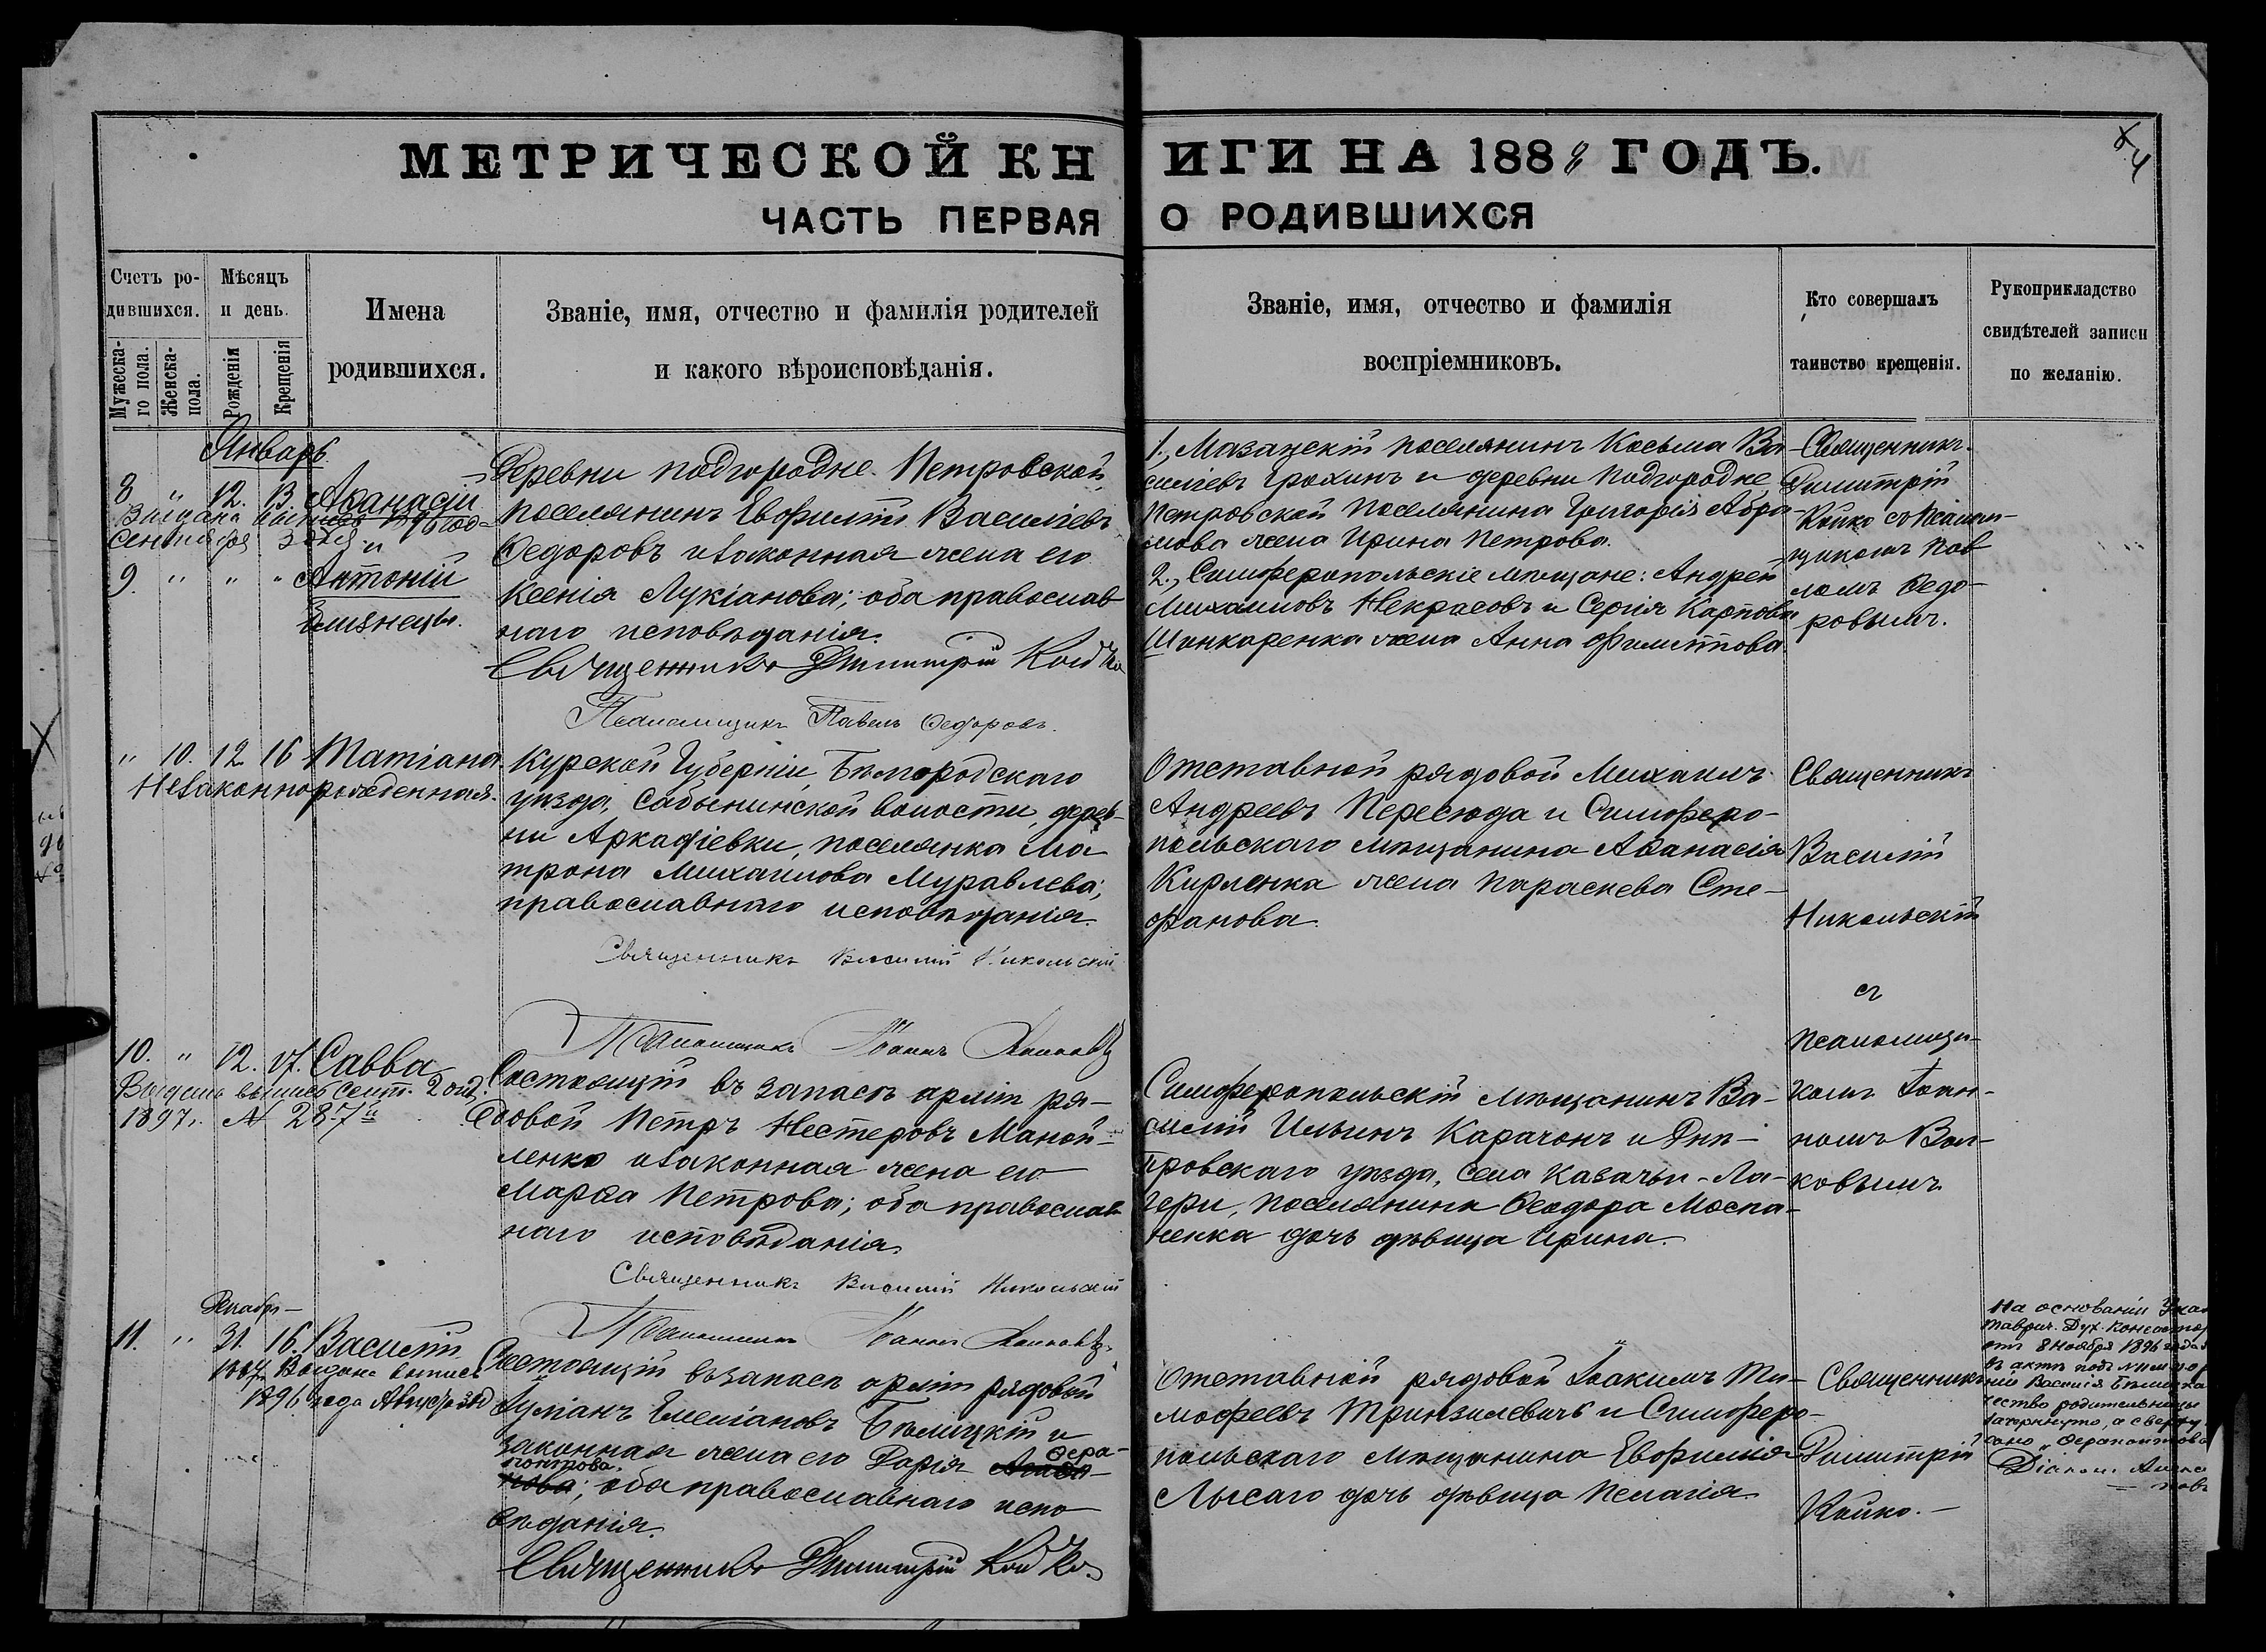 МЕТРИЧЕСКОЙ КНИГИ НА 1888 ГОДЪ.
4
ЧАСТЬ ПЕРВАЯ О РОДИВШИХСЯ
Счетъ ро-
дившихся.
Мужеска-
го пола.
Женска-
пола.
Мѣсяцъ
и день.
Рожденія
Крещенія
Имена
родившихся.
Званіе, имя, отчество и фамилія родителей
и какого вѣроисповѣданія.
Званіе, имя, отчество и фамилія
воспріемниковъ.
Кто совершалъ
таинство крещенія.
Рукоприкладство
свидѣтелей записи
по желанію.
Январь
8 " 12. 13 Аѳанасій
Выдана выпись 1896 год-
Сентября
9. " " " Антоній
Близнецы.
Деревни Подгородне-Петровской,
поселянинъ Евфимій Василіевъ
Ѳедоровъ и законная жена его
Ксенія Лукіанова; оба православ
наго исповѣданія.
Священникъ Димитрій Койко
Псаломщикъ Павелъ Ѳедоровъ.
1., Мазанскій поселянинъ Косьма Ва-
силіевъ Грохинъ и деревни Подгородне
Петровской поселянина Григорія Абра-
мова жена Ирина Петрова.
2., Симферопольскіе мѣщане: Андрей
Михаиловъ Некрасовъ и Сергія Карпова
Шинкаренка жена Анна Филиппова.
Священникъ
Димитрій
Койко съ псалом-
щикомъ Пав
ломъ Ѳедо-
ровымъ.
" 10. 12 16 Татіана
Незаконнорожденная.
Курской Губерніи, Бѣлгородскаго
уѣзда, Сабынинской волости, дерев-
ни Аркадіевки, поселянка Ма
трона Михаилова Муравлева;
православнаго исповѣданія.
Священникъ Василій Никольскій
Псаломщикъ Іоаннъ
Отставной рядовой Михаилъ
Андреевъ Пересюда и Симферо-
польскаго мѣщанина Аѳанасія
Кирленка жена Параскева Сте-
фанова.
Священникъ
Василій
Никольскій
съ
псаломщи-
комъ Іоан-
номъ Вол-
ковымъ
10. " 12. 17. Савва
Выдана выпись Сент. 2 
1897г. № 287
Состоящій въ запасѣ арміи ря-
довой Петръ Нестеровъ Маной-
ленко и законная жена его
Марѳа Петрова; оба православ
наго исповѣданія
Священникъ Василій Никольскій
Псаломщикъ Іоаннъ
Симферопольскій мѣщанинъ Ва-
силій Ильинъ Карачонъ и Днѣ-
провскаго уѣзда, села Казачьи-Ла-
гери, поселянина Ѳеодора Моспа-
ненка дочь дѣвица Ирина.
Декабрь
11. " 31. 16. Василій
1887. Выдана выпись
1896 года Августа
Состоящій въ запасѣ арміи рядовой
Бѣлицкій и
законная жена его Дарія Ѳера-
понтова; оба православнаго испо
вѣданія.
Священникъ Димитрій Койко
Отставной рядовой Іоакимъ Ти-
мофеевъ Тринзилевичъ и Симферо-
польскаго мѣщанина Евфимія
Лысаго дочь дѣвица Пелагія.
Священникъ
Димитрій
Койко.
На основаніи Указ
Таврич. Дух. Консистор
отъ 8 Ноября 1896 года
въ актѣ подъ №
Василія Бѣлицка
чество родительницы
зачеркнуто, а сверху
сано "Ѳерапонтова
Діаконъ